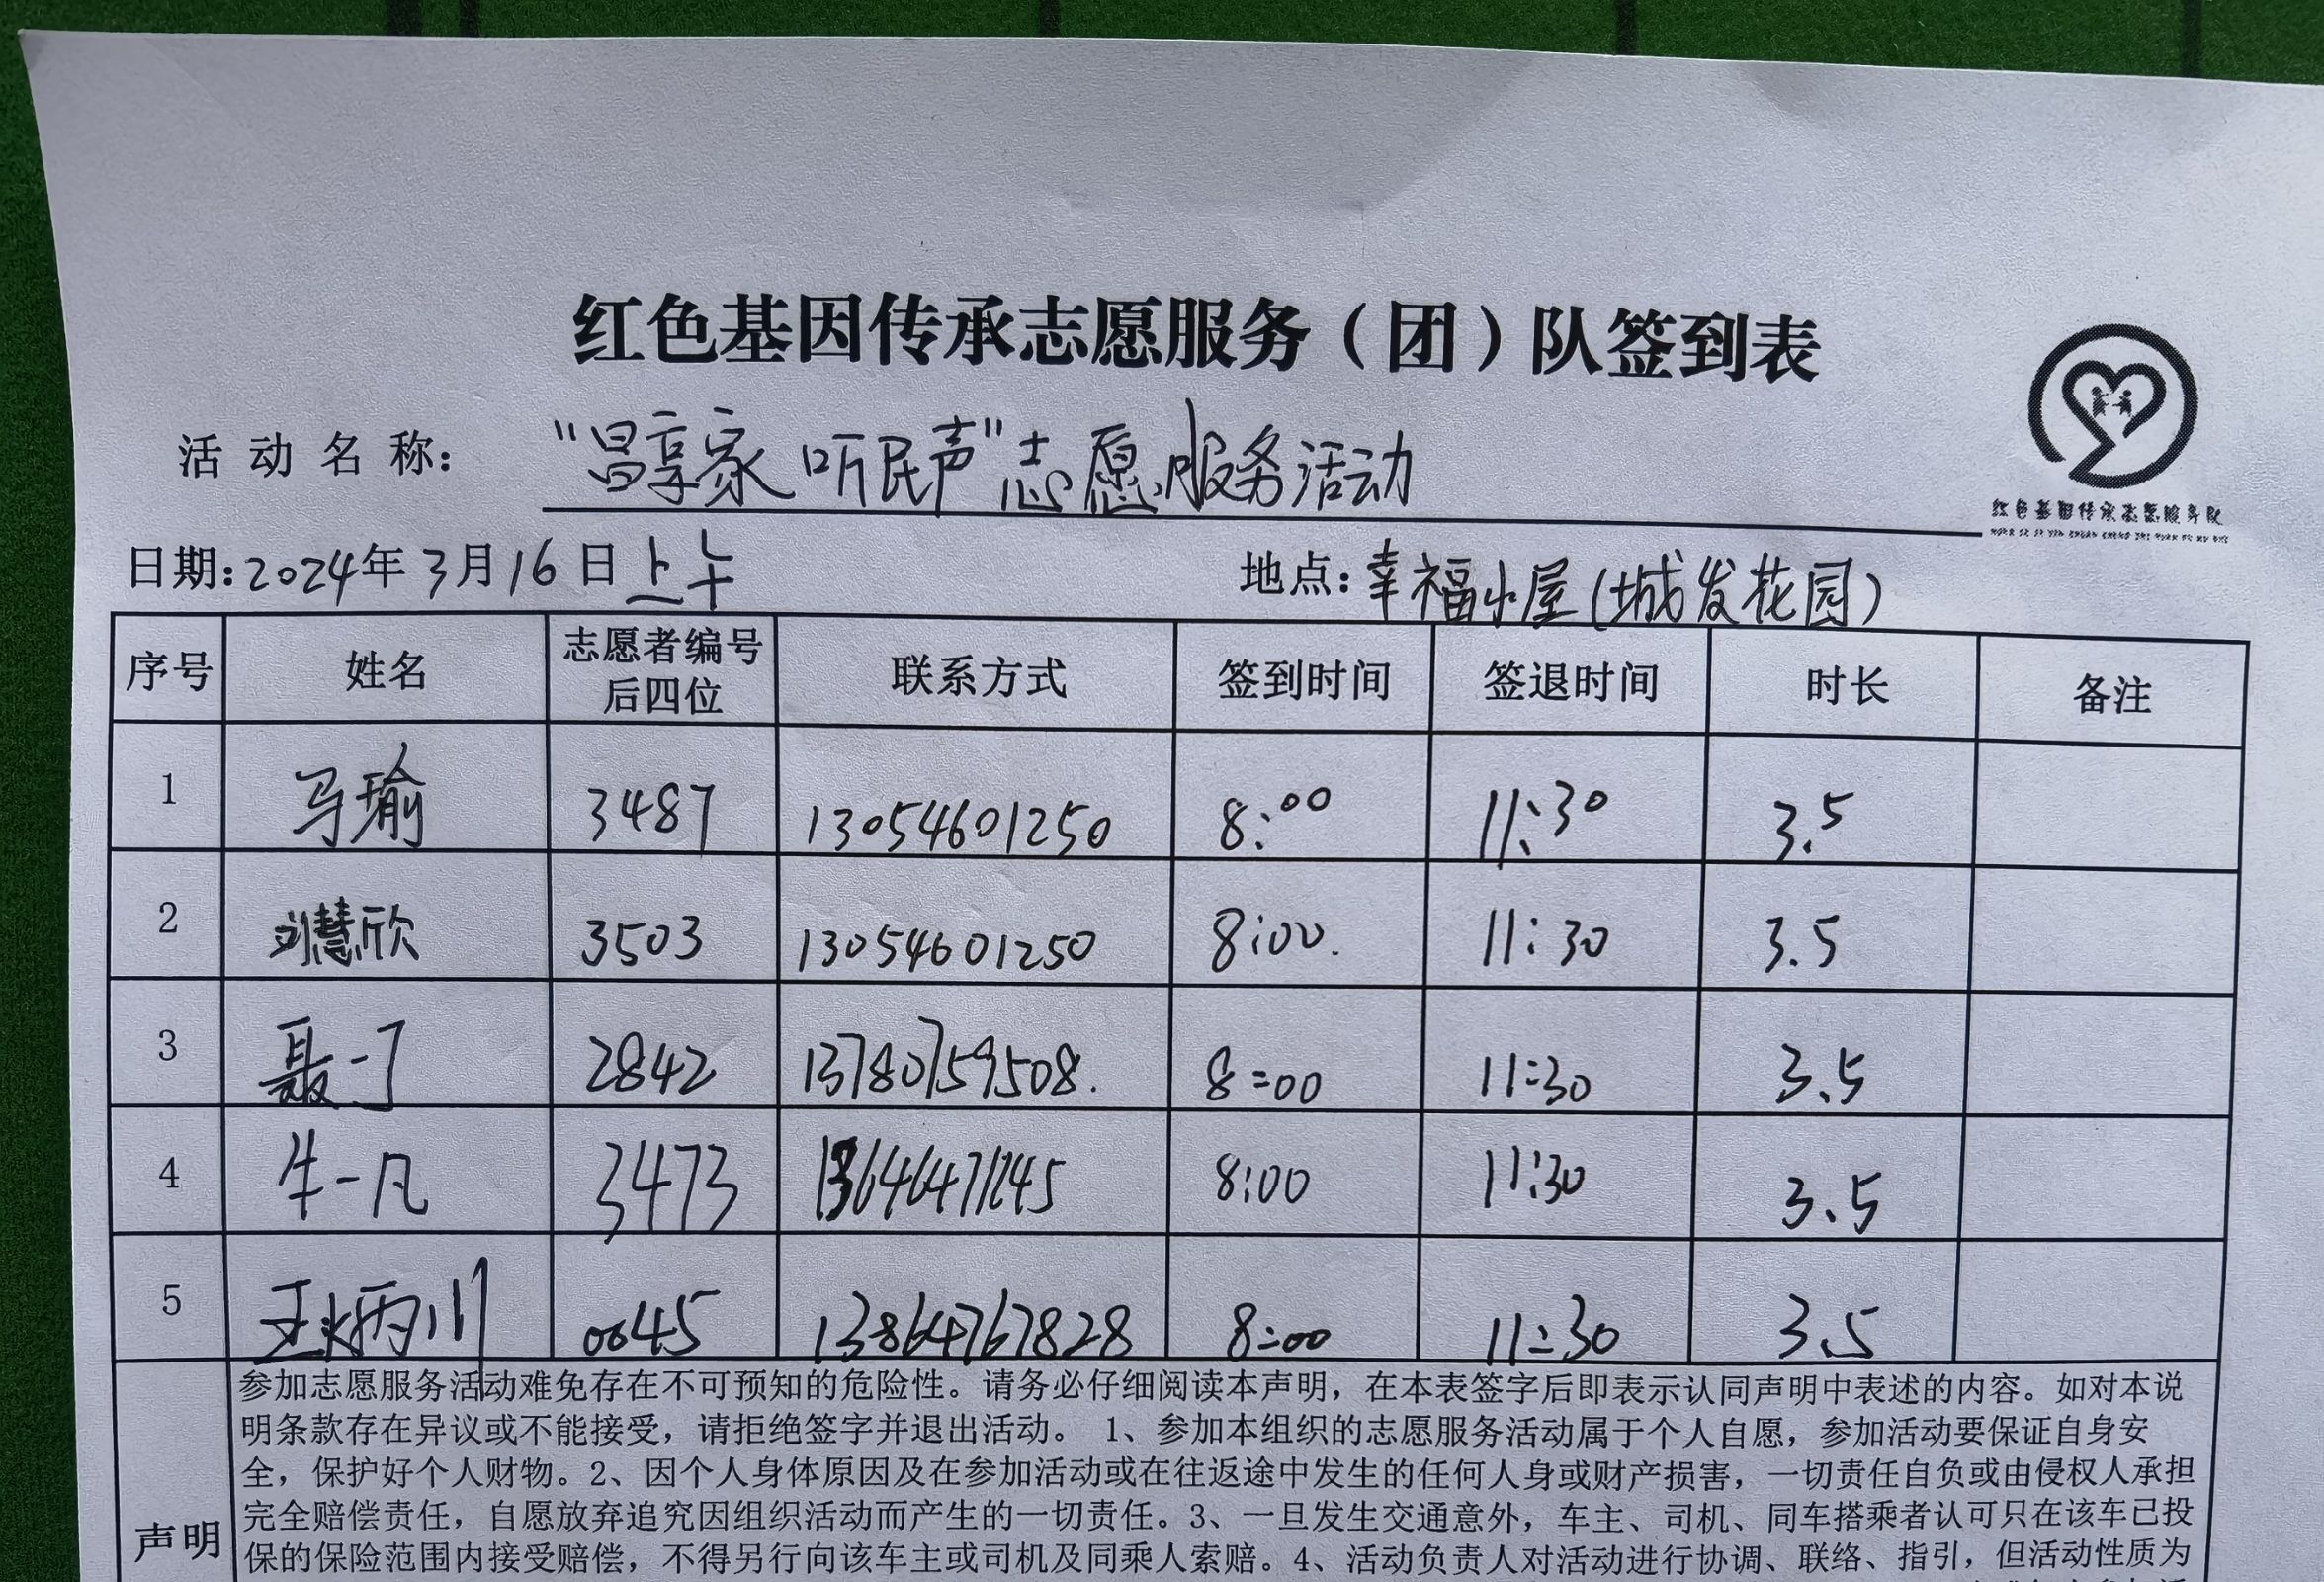 红色基因传承志愿服务（团）队签到表
活动名称：“昌享家 听民声”志愿服务活动
红色基因传承志愿服务队
日期：2024年3月16日上午 地点：幸福小屋（城发花园）
序号 姓名 志愿者编号后四位 联系方式 签到时间 签退时间 时长 备注
1 马瑜 3487 13054601250 8:00 11:30 3.5
2 刘慧欣 3503 13054601250 8:00. 11:30 3.5
3 聂一丁 2842 13780759508. 8:00 11:30 3.5
4 牛一凡 3473 13646471245 8:00 11:30 3.5
5 王炳川 0045 13864767828 8:00 11:30 3.5
声明
参加志愿服务活动难免存在不可预知的危险性。请务必仔细阅读本声明，在本表签字后即表示认同声明中表述的内容。如对本说
明条款存在异议或不能接受，请拒绝签字并退出活动。 1、参加本组织的志愿服务活动属于个人自愿，参加活动要保证自身安
全，保护好个人财物。2、因个人身体原因及在参加活动或在往返途中发生的任何人身或财产损害，一切责任自负或由侵权人承担
完全赔偿责任，自愿放弃追究因组织活动而产生的一切责任。3、一旦发生交通意外，车主、司机、同车搭乘者认可只在该车已投
保的保险范围内接受赔偿，不得另行向该车主或司机及同乘人索赔。4、活动负责人对活动进行协调、联络、指引，但活动性质为